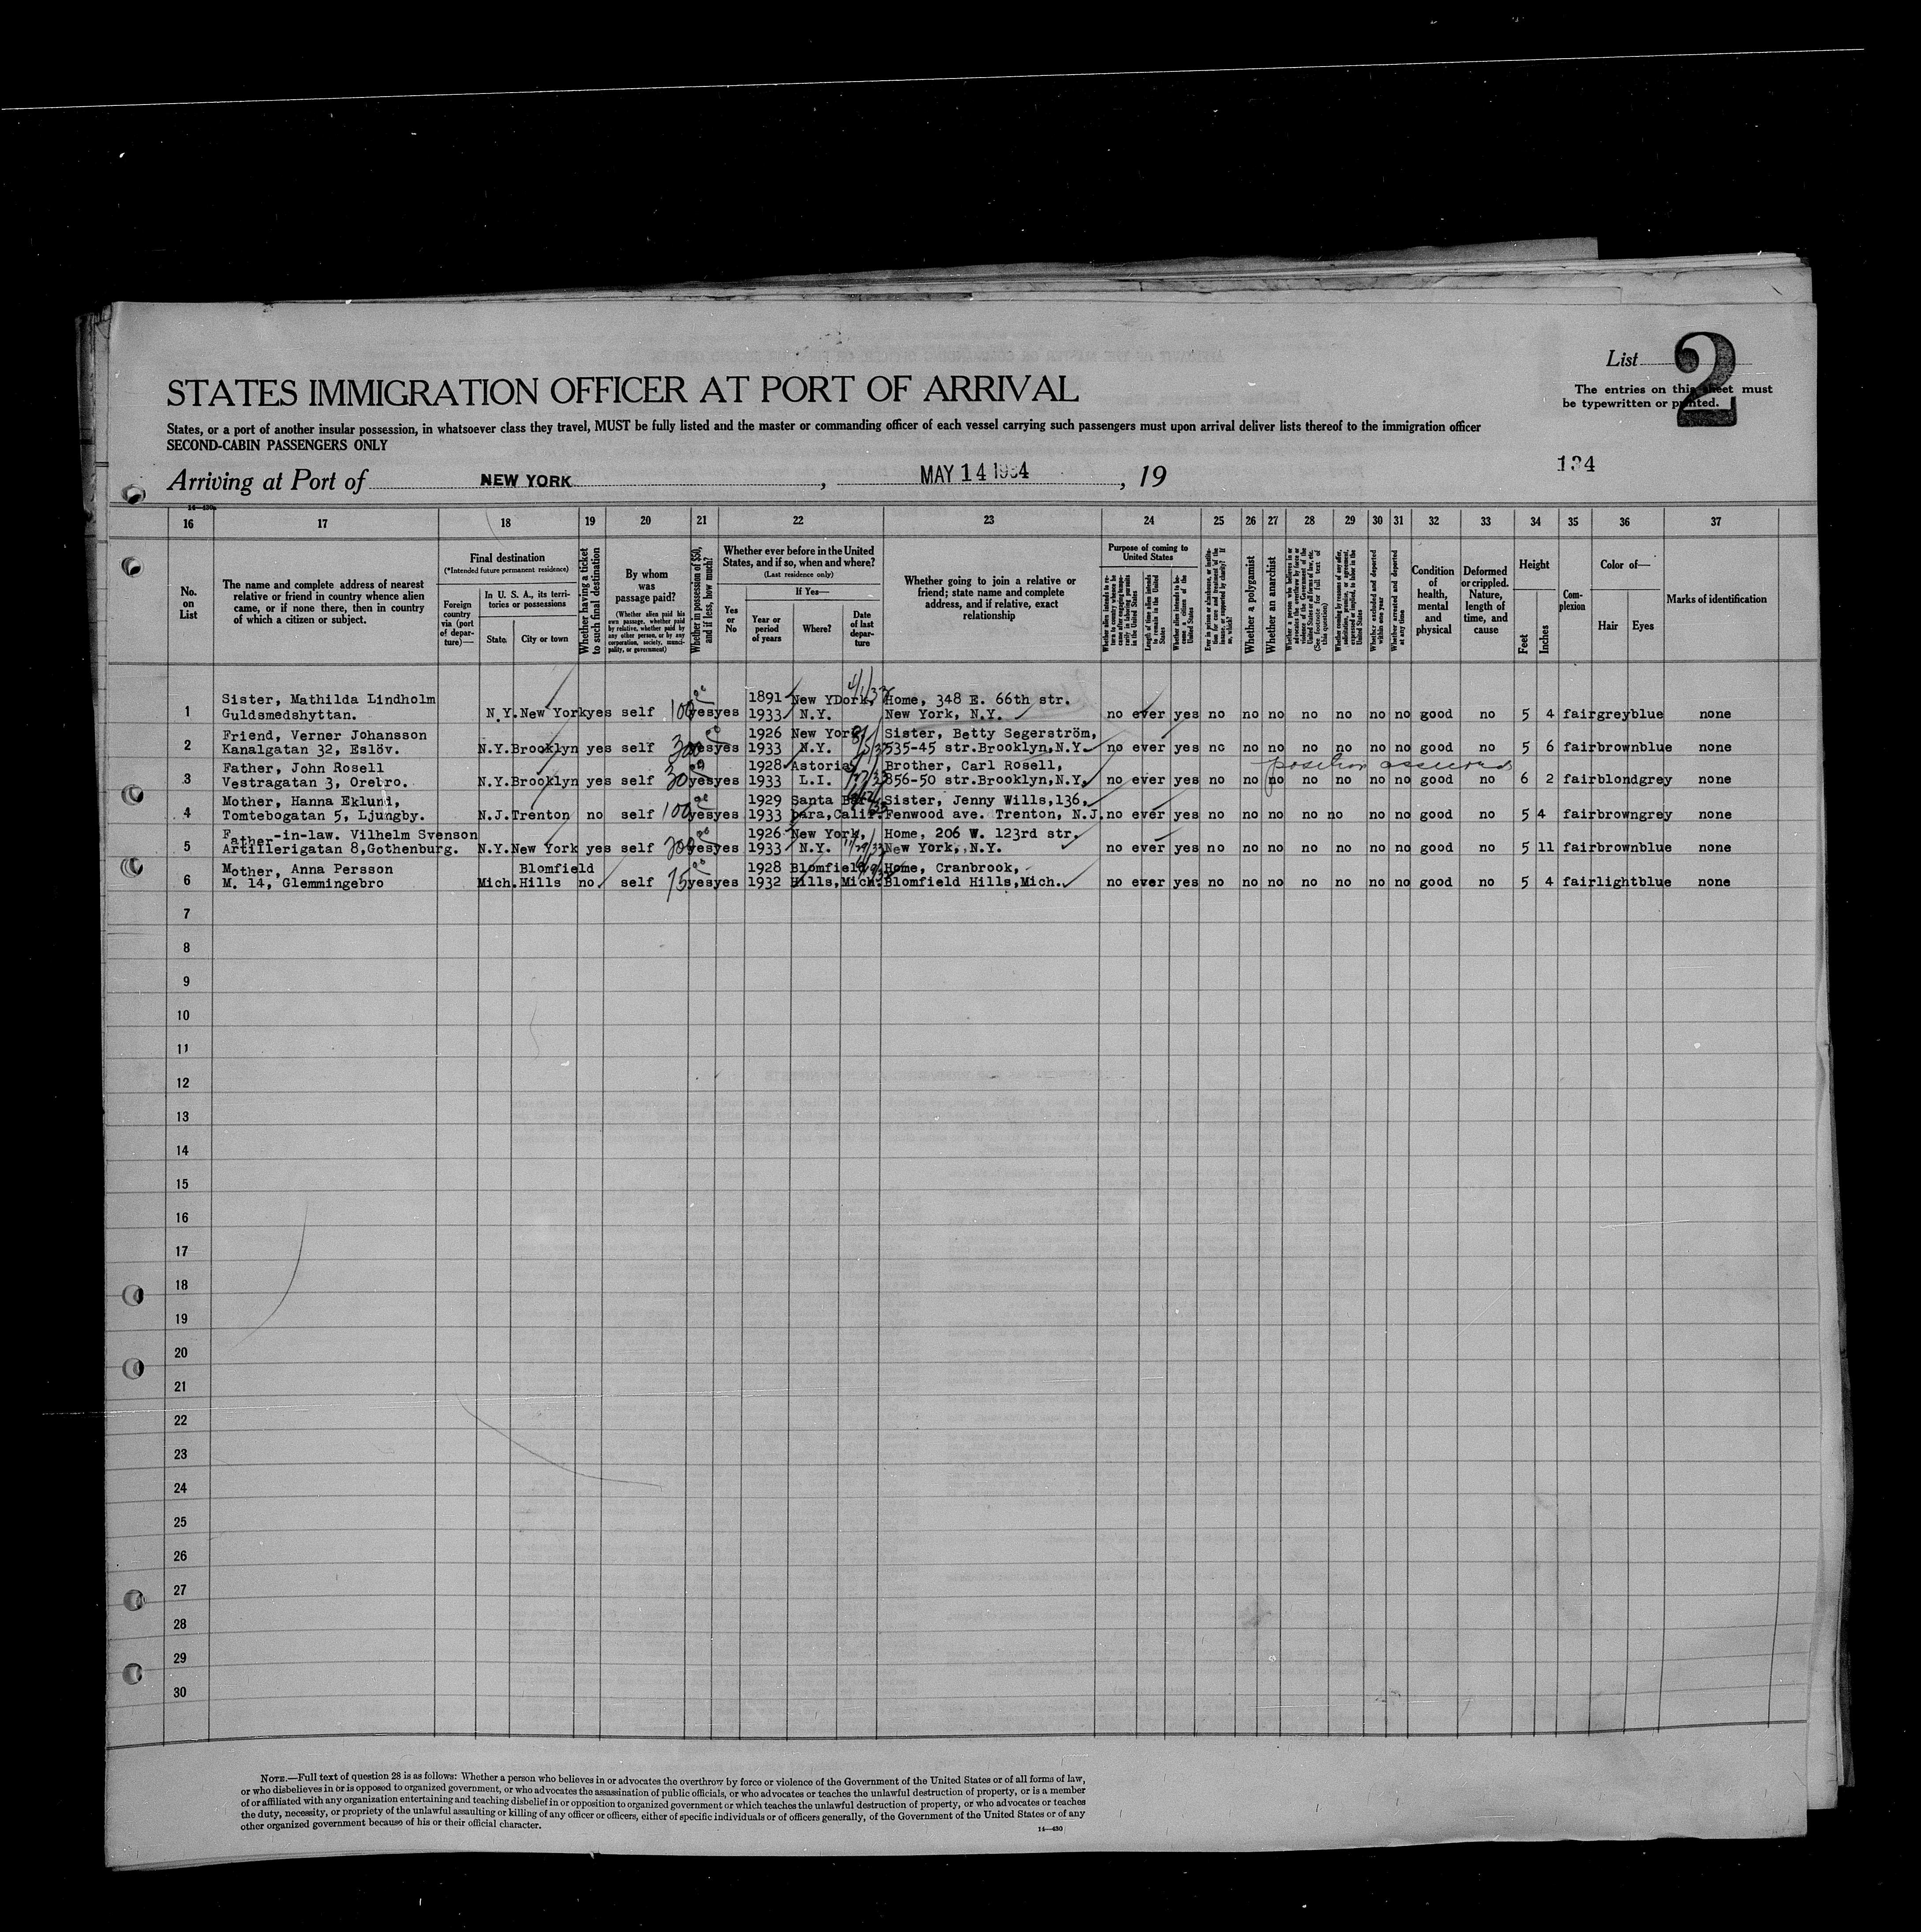 List 2
STATES IMMIGRATION OFFICER AT PORT OF ARRIVAL
The entries on this sheet must
be typewritten or printed.
States, or a port of another insular possession, in whatsoever class they travel, MUST be fully listed and the master or commanding officer of each vessel carrying such passengers must upon arrival deliver lists thereof to the immigration officer
SECOND-CABIN PASSENGERS ONLY
134
Arriving at Port of NEW YORK, MAY 14 1934, 19
14—430
16 17 18 19 20 21 22 23 24 25 26 27 28 29 30 31 32 33 34 35 36 37
No. on List
The name and complete address of nearest
relative or friend in country whence alien
came, or if none there, then in country
of which a citizen or subject.
Final destination
(*Intended future permanent residence)
Foreign country via (port of departure)—
In U. S. A., its territories or possessions
State City or town
Whether having a ticket to such final destination
By whom was passage paid?
(Whether alien paid his own passage, whether paid by relative, whether paid by any other person, or by any corporation, society, municipality, or government)
Whether in possession of $50, and if less, how much?
Whether ever before in the United
States, and if so, when and where?
(Last residence only)
Yes or No
If Yes—
Year or period of years
Where?
Date of last departure
Whether going to join a relative or
friend; state name and complete
address, and if relative, exact
relationship
Purpose of coming to United States
Length of time alien intends to remain in the United States
Whether alien intends to become a citizen of the United States
Whether a polygamist
Whether an anarchist
Whether excluded and deported within one year
Whether arrested and deported at any time
Condition of health, mental and physical
Deformed or crippled. Nature, length of time, and cause
Height
Feet Inches
Complexion
Color of—
Hair Eyes
Marks of identification
Sister, Mathilda Lindholm 1891 New YDork, 4/1/33 Home, 348 E. 66th str.
1 Guldsmedshyttan. N.Y. New York yes self 100 yes yes 1933 N.Y. New York, N.Y. no ever yes no no no no no no no good no 5 4 fair grey blue none
Friend, Verner Johansson 1926 New York Sister, Betty Segerström,
2 Kanalgatan 32, Eslöv. N.Y. Brooklyn yes self 300 yes yes 1933 N.Y. 535-45 str.Brooklyn,N.Y. no ever yes no no no no no no no good no 5 6 fair brown blue none
Father, John Rosell 1928 Astoria, Brother, Carl Rosell, position assured
3 Vestragatan 3, Orebro. N.Y. Brooklyn yes self 30 yes yes 1933 L.I. 856-50 str.Brooklyn,N.Y. no ever yes no no no no no no no good no 6 2 fair blond grey none
Mother, Hanna Eklund, 1929 Santa Bar- Sister, Jenny Wills,136,
4 Tomtebogatan 5, Ljungby. N.J. Trenton no self 100 yes yes 1933 bara,Calif. Fenwood ave. Trenton, N.J. no ever yes no no no no no no no good no 5 4 fair brown grey none
Father-in-law. Vilhelm Svenson 1926 New York, Home, 206 W. 123rd str.
5 Artillerigatan 8,Gothenburg. N.Y. New York yes self 200 yes yes 1933 N.Y. New York, N.Y. no ever yes no no no no no no no good no 5 11 fair brown blue none
Mother, Anna Persson Blomfield 1928 Blomfield Home, Cranbrook,
6 M. 14, Glemmingebro Mich. Hills no self 75 yes yes 1932 Hills,Mich. Blomfield Hills,Mich. no ever yes no no no no no no no good no 5 4 fair light blue none
7
8
9
10
11
12
13
14
15
16
17
18
19
20
21
22
23
24
25
26
27
28
29
30
NOTE.—Full text of question 28 is as follows: Whether a person who believes in or advocates the overthrow by force or violence of the Government of the United States or of all forms of law,
or who disbelieves in or is opposed to organized government, or who advocates the assassination of public officials, or who advocates or teaches the unlawful destruction of property, or is a member
of or affiliated with any organization entertaining and teaching disbelief in or opposition to organized government or which teaches the unlawful destruction of property, or who advocates or teaches
the duty, necessity, or propriety of the unlawful assaulting or killing of any officer or officers, either of specific individuals or of officers generally, of the Government of the United States or of any
other organized government because of his or their official character.
14—430